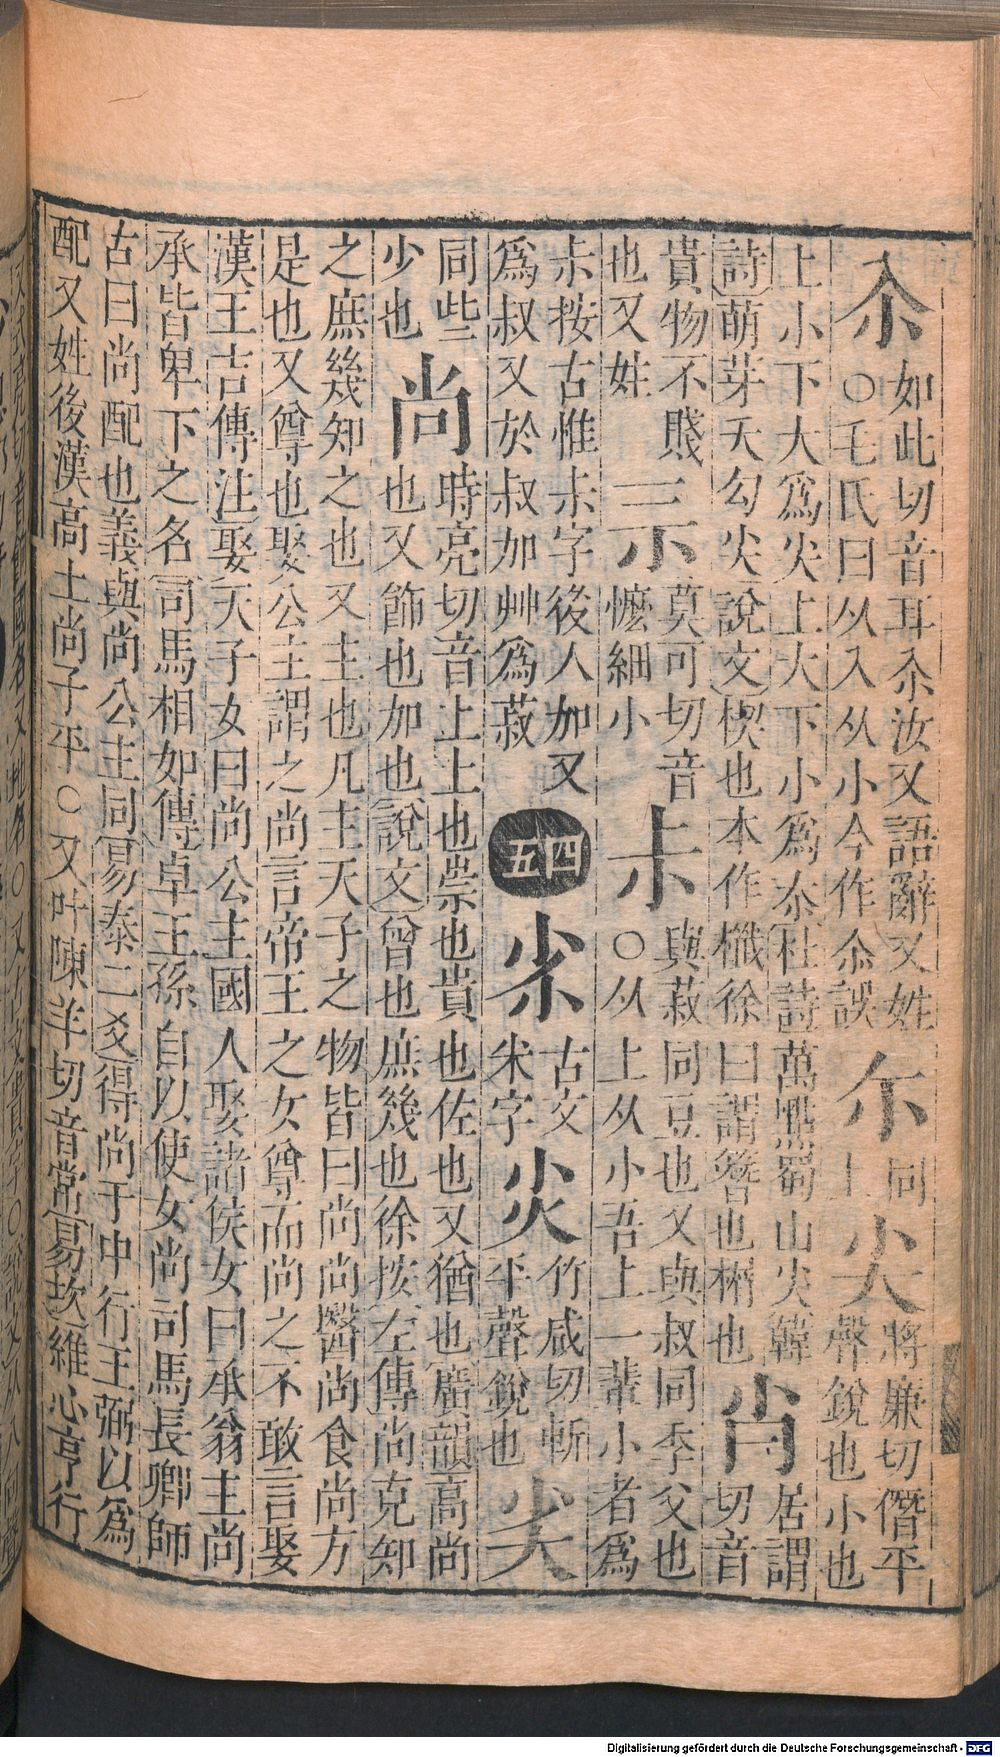 尒如此切音耳尒汝又語辭又姓○毛氏曰从入从小今作尒誤尓同上尖將廉切僭平聲銳也小也
上小下大爲尖上大下小爲夵杜詩萬點蜀山尖韓詩萌芽夭勾尖說文楔也本作櫼徐曰謂簪也櫼也㡭居謂切音
貴物不賤也又姓莫可切音懡細小尗與菽同豆也又與叔同季父也○从上从小吾上一輩小者爲
尗按古惟尗字後人加又爲叔又於叔加艸爲菽四五古文米字竹咸切斬平聲銳也尖
同些少也尚時亮切音上上也崇也貴也佐也又猶也廣韻高尚也又飾也加也說文曾也庶幾也徐按左傳尚克知
之庶幾知之也又主也凡主天子之物皆曰尚尚醫尚食尚方
是也又尊也娶公主謂之尚言帝王之女尊而尚之不敢言娶
漢王吉傳注娶天子女曰尚公主國人娶諸侯女曰承翁主尚
承皆卑下之名司馬相如傳卓王孫自以使女尚司馬長卿師
古曰尚配也義與尚公主同易泰二爻得尚于中行王弼以爲
配又姓後漢高士尚子平○又叶陳羊切音常易坎維心亨行
Digitalisierung gefördert durch die Deutsche Forschungsgemeinschaft - DFG